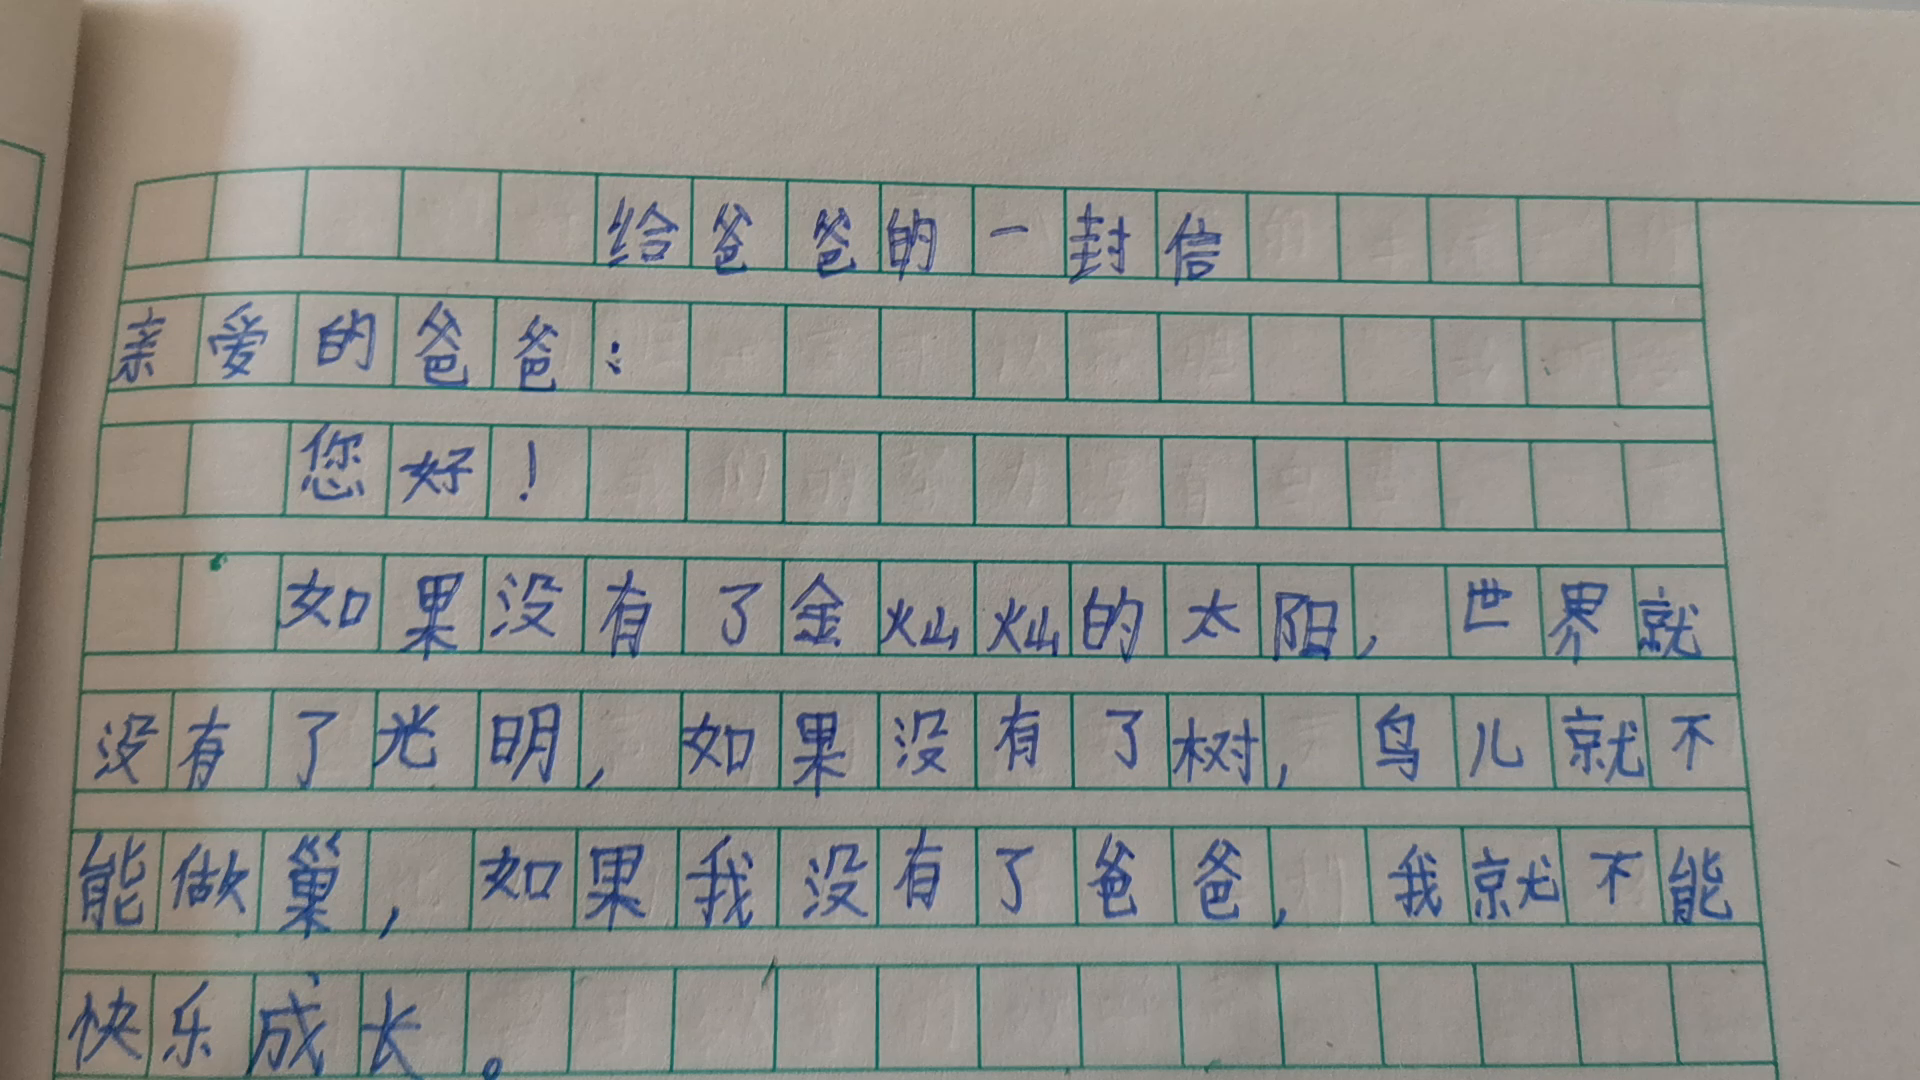 给爸爸的一封信
亲爱的爸爸：
您好！
如果没有了金灿灿的太阳，世界就
没有了光明，如果没有了树，鸟儿就不
能做巢，如果我没有了爸爸，我就不能
快乐成长。